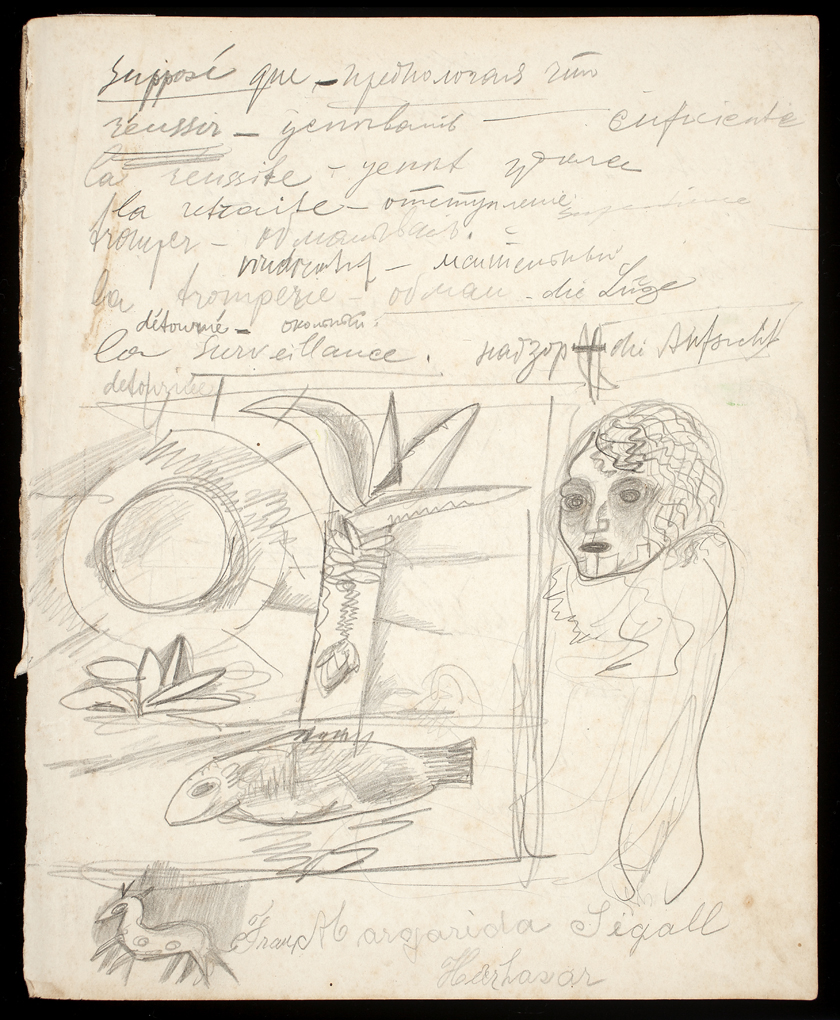 Supposé que – предпологая что
réussir – успѣвать – suficiente
la réussite – успѣх удача
la retraite – отступление
tromper – обманывать. –
vindicatif – мстительный
la tromperie – обман – die Lüge
détourné – окольный.
la Surveillance. надзор die Aufsicht
Frau Margarida Segall